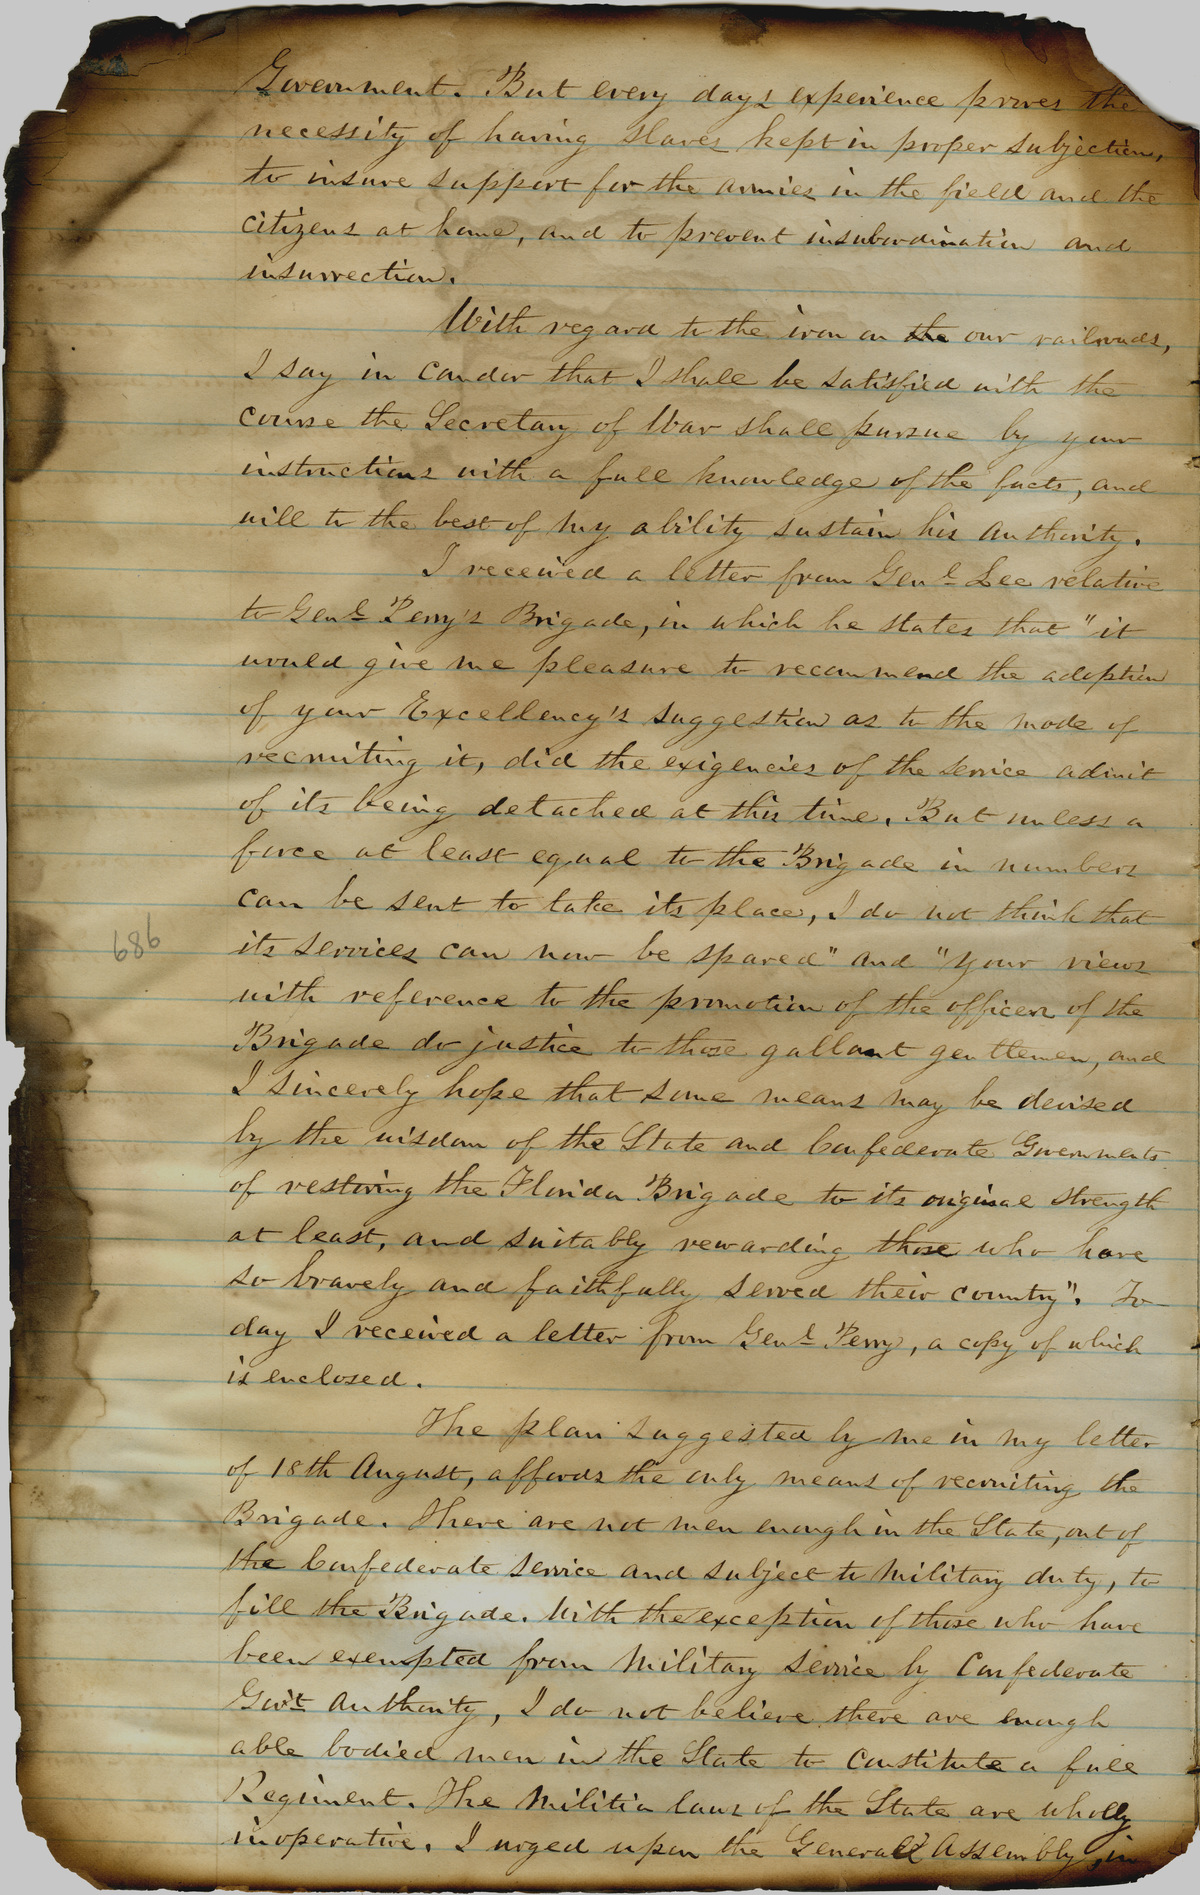 Government. But every days experience proves the
necessity of having slaves kept in proper subjection,
to insure support for the armies in the field and the
citizens at home, and to prevent insubordination and
insurrection.
With regard to the iron on the our railroads,
I say in candor that I shall be satisfied with the
course the Secretary of War shall pursue by your
instructions with a full knowledge of the facts, and
will to the best of my ability sustain his authority.
I received a letter from Genl Lee relative
to Genl Perry's Brigade, in which he states that "it
would give me pleasure to recommend the adoption
of your Excellency's suggestion as to the mode of
recruiting it, did the exigencies of the service admit
of its being detached at this time. But unless a
force at least equal to the Brigade in numbers
can be sent to take its place, I do not think that
its services can now be spared" and "your views
686
with reference to the promotion of the officers of the
Brigade do justice to those gallant gentlemen, and
I sincerely hope that some means may be devised
by the wisdom of the State and Confederate Governments
of restoring the Florida Brigade to its original strength
at least, and suitably rewarding those who have
so bravely and faithfully served their country". To-
day I received a letter from Genl Perry, a copy of which
is enclosed.
The plan suggested by me in my letter
of 18th August, affords the only means of recruiting the
Brigade. There are not men enough in the State, out of
the Confederate service and subject to military duty, to
fill the Brigade. With the exception of those who have
been exempted from military service by Confederate
Govt authority, I do not believe there are enough
able bodied men in the State to constitute a full
Regiment. The militia laws of the State are wholly
inoperative. I urged upon the General Assembly, in